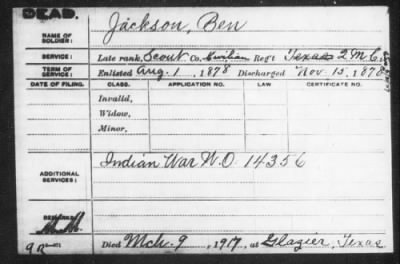 DEAD.
NAME OF SOLDIER: Jackson, Ben
SERVICE: Late rank, Scout Co. Civilian Reg't Texas 2 M C
TERM OF SERVICE: Enlisted Aug. 1, 1878 Discharged Nov. 15, 1878
DATE OF FILING. CLASS. APPLICATION NO. LAW CERTIFICATE NO.
Invalid,
Widow,
Minor,
ADDITIONAL SERVICES: Indian War W.O. 14356
REMARKS:
Died Mch. 9, 1917, at Glazier, Texas